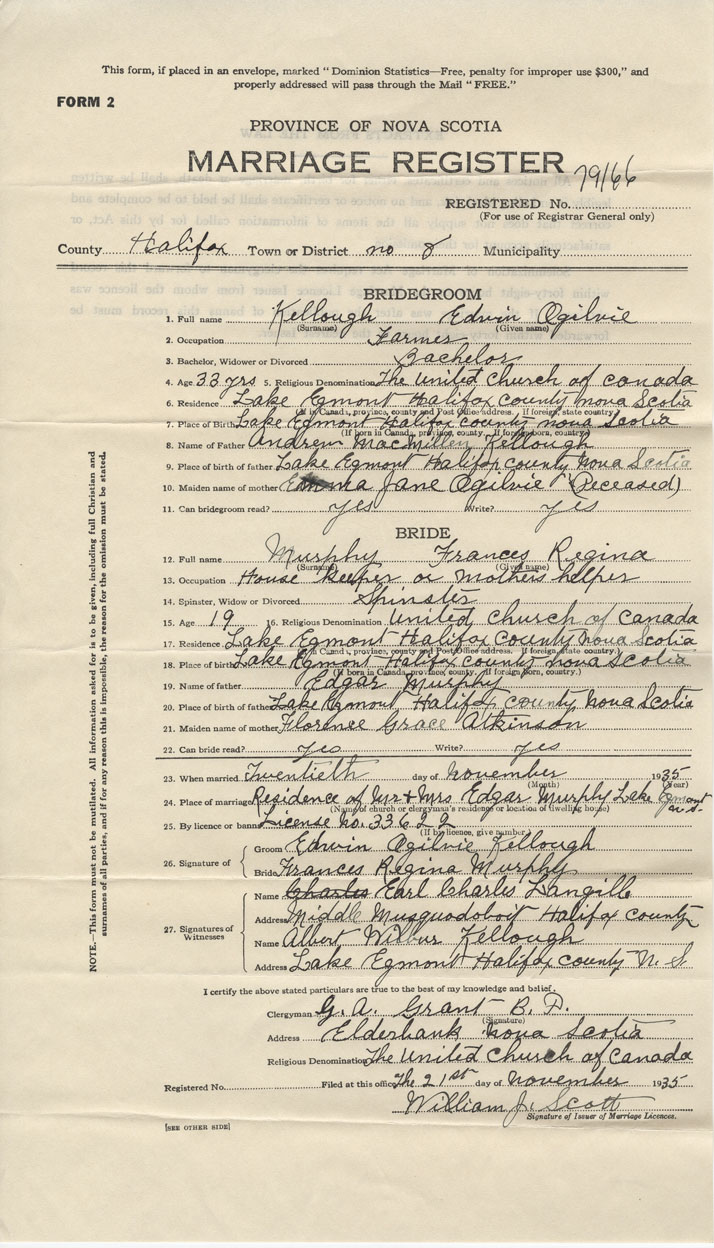 This form, if placed in an envelope, marked "Dominion Statistics—Free, penalty for improper use $300," and
properly addressed will pass through the Mail "FREE."
FORM 2
PROVINCE OF NOVA SCOTIA
MARRIAGE REGISTER
79166
REGISTERED No.
(For use of Registrar General only)
County Halifax Town or District no 8 Municipality
BRIDEGROOM
1. Full name Kellough Edwin Ogilvie
(Surname) (Given name)
2. Occupation Farmer
3. Bachelor, Widower or Divorced Bachelor
4. Age 33 yrs 5. Religious Denomination The United church of canada
6. Residence Lake Egmont Halifax county nova Scotia
(If in Canada, province, county and Post Office address. If foreign, state country.)
7. Place of Birth Lake Egmont Halifax county nova Scotia
(If born in Canada, province, county. If foreign born, country.)
8. Name of Father Andrew MacMillen Kellough
9. Place of birth of father Lake Egmont Halifax county Nova Scotia
10. Maiden name of mother Emma Jane Ogilvie (Deceased)
11. Can bridegroom read? yes Write? yes
BRIDE
12. Full name Murphy Frances Regina
(Surname) (Given name)
13. Occupation House keeper or mothers helper
14. Spinster, Widow or Divorced Spinster
15. Age 19 16. Religious Denomination United church of canada
17. Residence Lake Egmont Halifax County Nova Scotia
(If in Canada, province, county and Post Office address. If foreign, state country.)
18. Place of birth Lake Egmont Halifax county nova Scotia
(If born in Canada, province, county. If foreign born, country.)
19. Name of father Edgar Murphy
20. Place of birth of father Lake Egmont, Halifax county, Nova Scotia
21. Maiden name of mother Florence Grace Atkinson
22. Can bride read? yes Write? yes
23. When married Twentieth day of november 1935
(Month) (Year)
24. Place of marriage Residence of Mr & Mrs Edgar Murphy Lake Egmont n.s.
(Name of church or clergyman's residence or location of dwelling house)
25. By licence or banns License no. 33622
(If by license, give number)
26. Signature of
Groom Edwin Ogilvie Kellough
Bride Frances Regina Murphy
27. Signatures of Witnesses
Name Charles Earl Charles Langille
Address Middle Musquodoboit Halifax county
Name Albert Wilbur Kellough
Address Lake Egmont Halifax county N. S.
I certify the above stated particulars are true to the best of my knowledge and belief.
Clergyman G. A. Grant B. D.
(Signature)
Address Elderbank Nova Scotia
Religious Denomination The United Church of Canada
Registered No. Filed at this office The 21st day of november 1935
William J. Scott
Signature of Issuer of Marriage Licences.
[SEE OTHER SIDE]
NOTE.—This form must not be mutilated. All information asked for is to be given, including full Christian and
surnames of all parties, and if for any reason this is impossible, the reason for the omission must be stated.